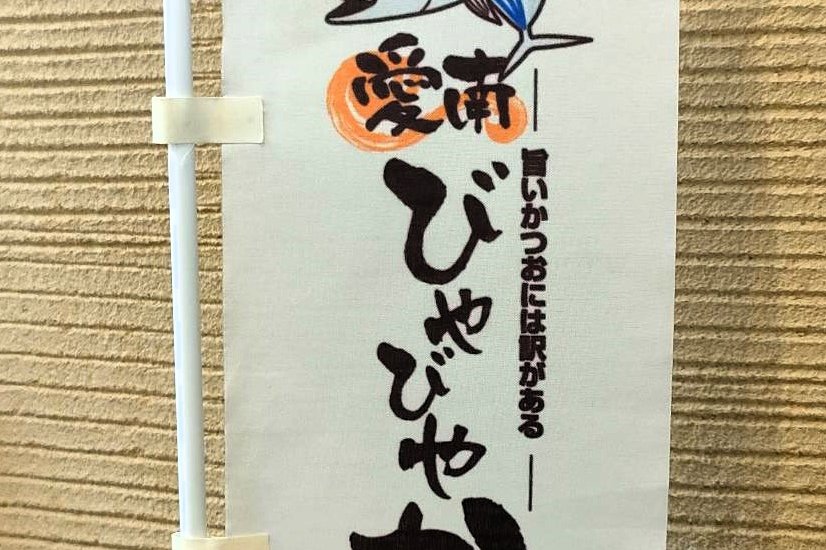 愛南
びやびや
旨いかつおには訳がある